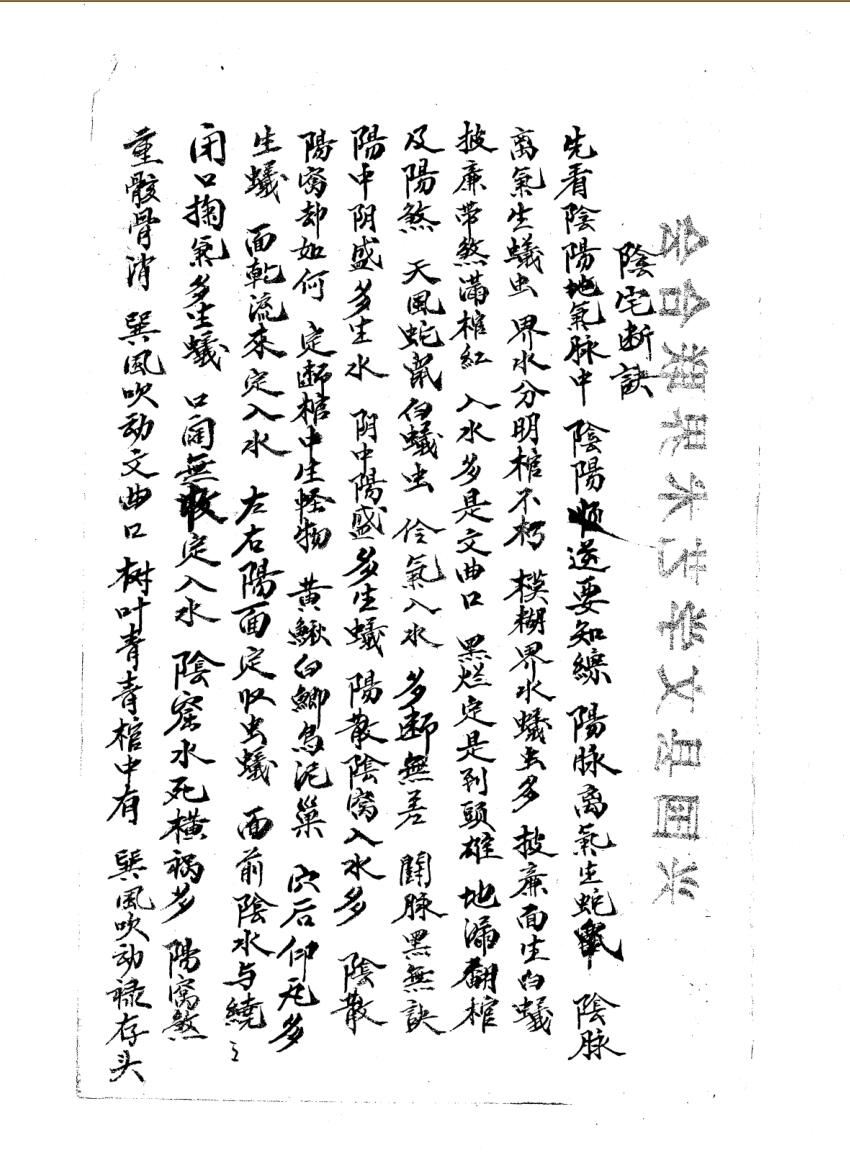 陰宅断訣
先看陰陽地氣脉中 陰陽順逆要知縱 陽脉离氣生蛇鼠 陰脉
离氣生蟻虫 界水分明棺不朽 模糊界水蟻虫多 披廉面生白蟻
披廉帶煞滿棺紅 入水多是文曲口 黑烂定是到頭雄 地漏翻棺
及陽煞 天風蛇鼠白蟻虫 伶氣入水多断無差 関脉黑無訣
陽中阴盛多生水 阴中陽盛多生蟻 陽散陰窩入水多 陰散
陽窩却如何 定断棺中生怪物 黄鳅白鲫烏泥巢 穴后仰瓦多
生蟻 面乾流來定入水 左右陽面定収虫蟻 面前陰水与繞
闭口掬氣多生蟻 口開無收定入水 陰窑水死橫祸多 陽窩煞
重骸骨消 巽風吹动文曲口 树叶青青棺中有 巽風吹动禄存头